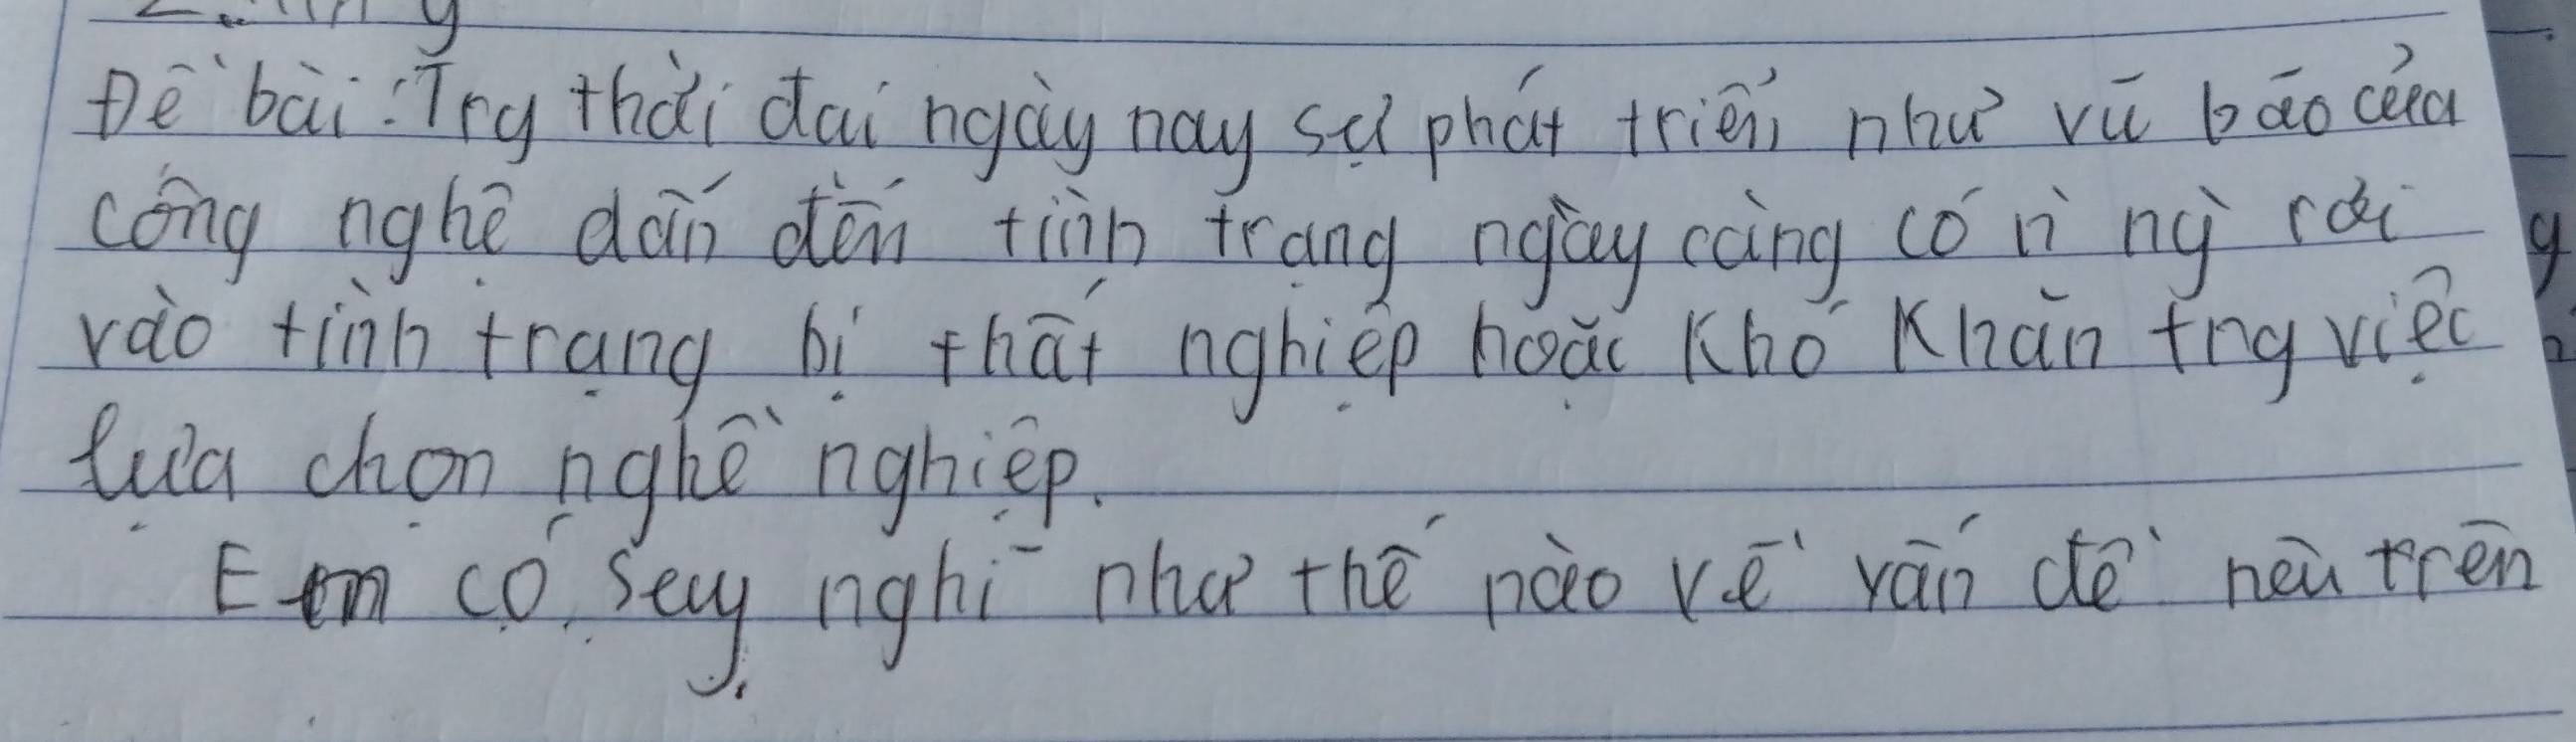 Đề bài: Trg thời đại ngày nay sự phát triển như vũ bão của
công nghệ dẫn đến tình trạng ngày càng có n` ng` rơi
vào tình trạng bị thất nghiệp hoặc khó khăn trg việc
lựa chọn nghề nghiệp.
Em có suy nghĩ như thế nào về vấn đề nêu trên